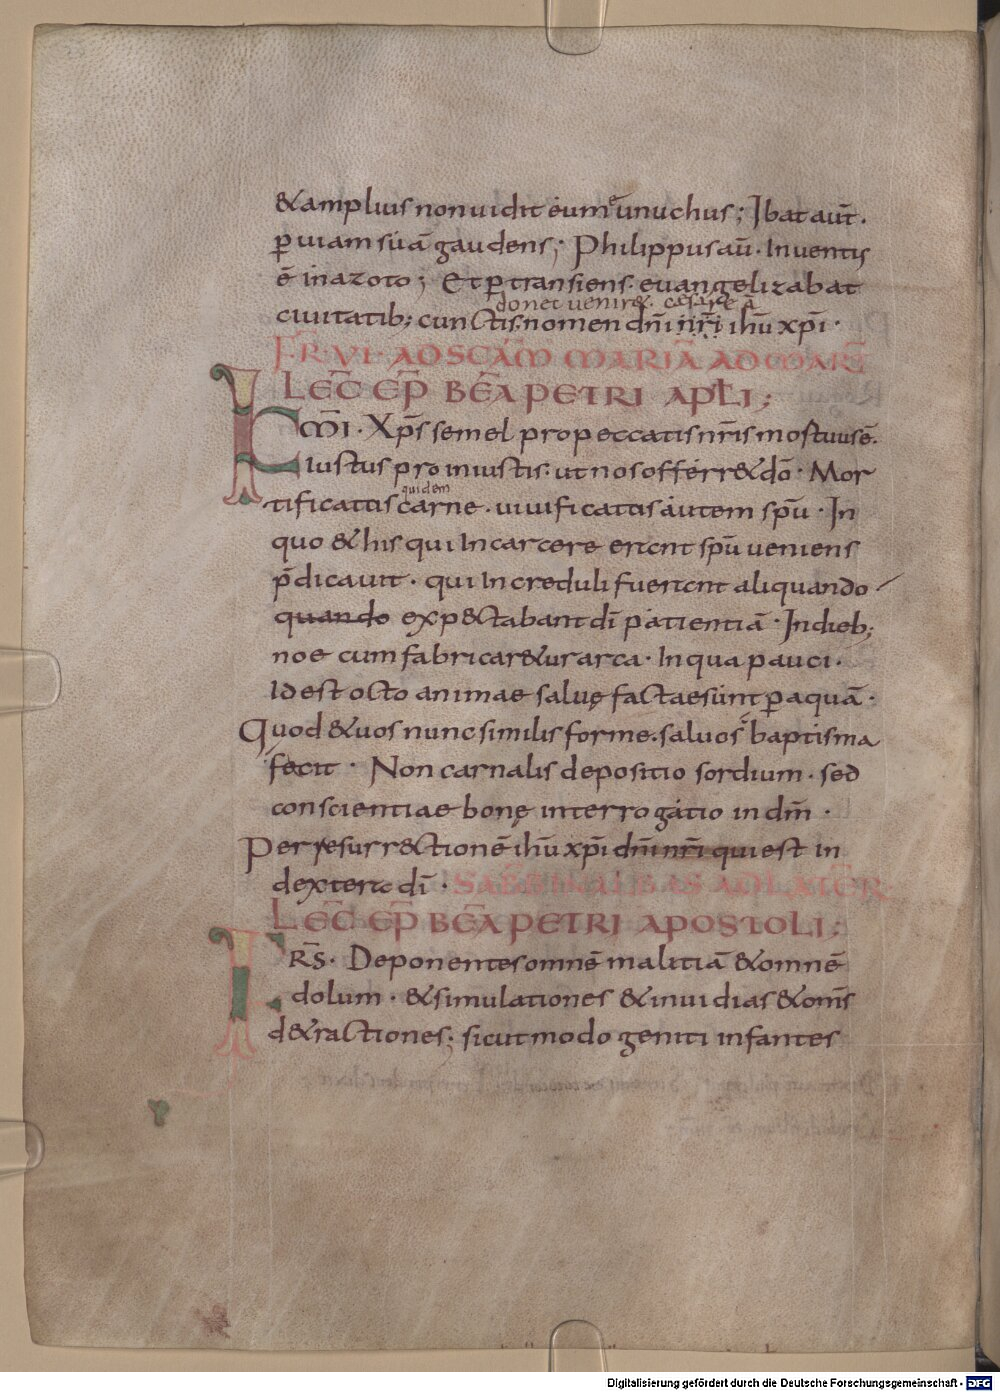 &amplius non uidit eum eunuchus; Ibat aut̄.
p̄ uiam suā gaudens; Philippus aū. Inuentis
ē in azoto; Et p̄transiens euangelizabat
donec uenir&. cesareā
ciuitatib; cunctis. nomen dn̄i nr̄i ihū xpī.
FR VI AD SCĀM MARIĀ AD MART̄
LEC̄ EP̄ BĒA PETRI APL̄I;
KM̄I. Xp̄s semel pro peccatis nr̄is mortuus ē.
Iustus pro iniustis. ut nos offerr& dō. Mor
quidem
tificatus carne. uiuificatus autem spū. In
quo & his qui In carcere erant spū ueniens
p̄dicauit. qui Increduli fuerant aliquando
quando exp&ctabant dī patientiā. In dieb;
noe cum fabricar&ur arca. In qua pauci.
Id est octo animae saluę factae sunt p̄ aquā.
Quod & uos nunc similis forme. saluos baptisma
fecit. Non carnalis depositio sordium. sed
conscientiae bonę interrogatio in dm̄.
Per resurr&ctionē ihū xpī dn̄i nr̄i qui est in
dextera dī. SABB IN ALBAS AD LATER̄
LEC̄ EP̄ BĒA PETRI APOSTOLI;
FRS̄. Deponentes omnē malitiā & omnē
dolum. & simulationes & inuidias & om̄s
d&ractiones; sicut modo geniti infantes
Digitalisierung gefördert durch die Deutsche Forschungsgemeinschaft - DFG